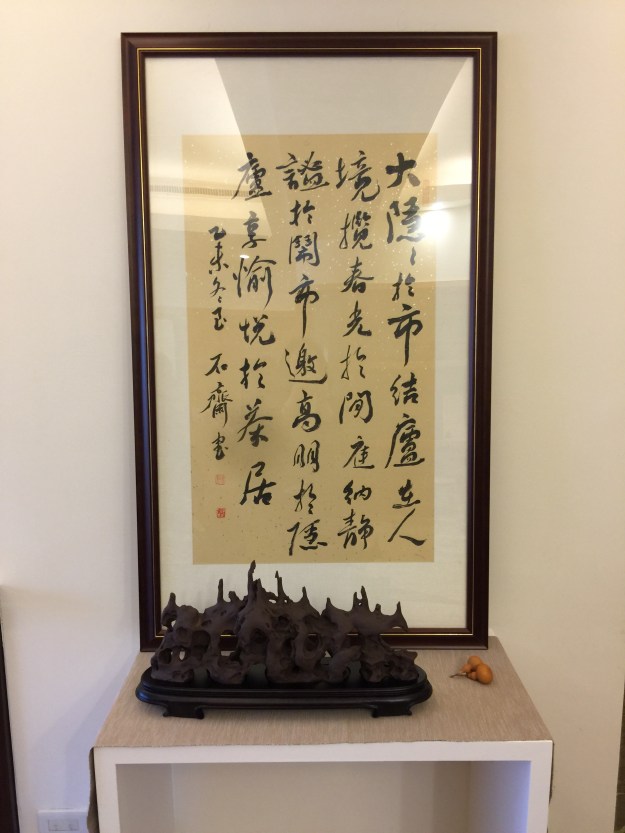 大隱ミ於市結廬在人
境攬春光於閒庭納靜
謐於鬧市邀高朋於隱
廬享愉悅於茶居
乙未冬玉石齋書